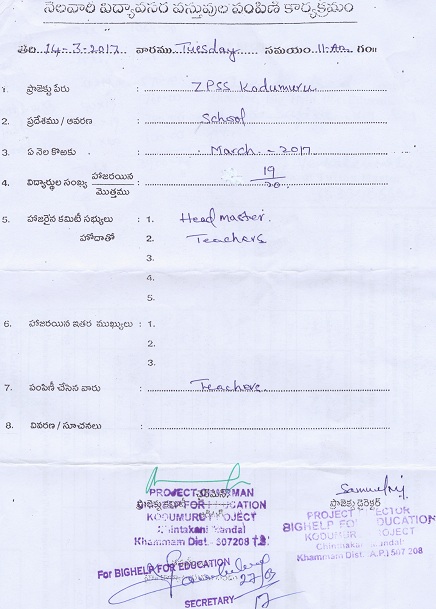 నెలవారి విద్యావసర వస్తువుల పంపిణి కార్యక్రమం
తేది 14-3-2017 వారము Tuesday సమయం 11-00 గం॥
1. ప్రాజెక్టు పేరు : ZPSS Kodumuru
2. ప్రదేశము / ఆవరణ : School
3. ఏ నెల కొఱకు : March - 2017
4. విద్యార్థుల సంఖ్య హాజరయిన / మొత్తము : 19 / 20
5. హాజరైన కమిటీ సభ్యులు : 1. Head master.
హోదాతో 2. Teachers
3.
4.
5.
6. హాజరయిన ఇతర ముఖ్యులు : 1.
2.
3.
7. పంపిణీ చేసిన వారు : Teachers
8. వివరణ / సూచనలు :
PROJECT
FOR EDUCATION
KODUMURU PROJECT
Chintakani Mandal
Khammam Dist. - 507208
ప్రాజెక్టు డైరెక్టర్
PROJECT DIRECTOR
BIGHELP FOR EDUCATION
KODUMUR PROJECT
Chintakani Mandal
Khammam Dist. A.P.) 507 208
For BIGHELP FOR EDUCATION
27/03
SECRETARY